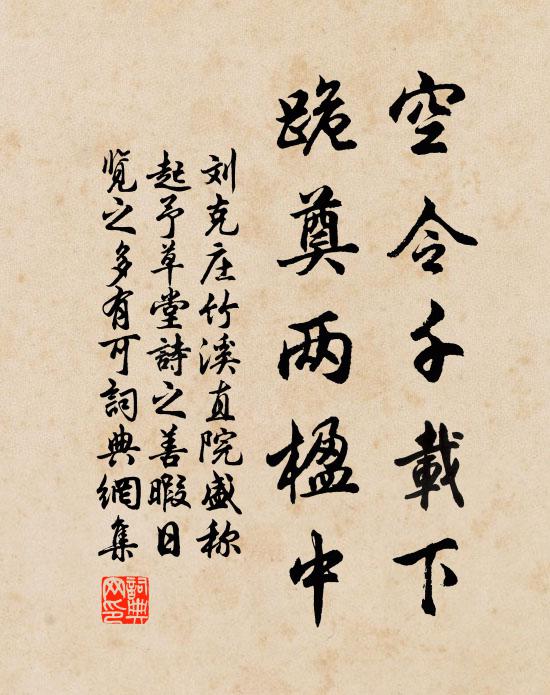 空令千載下
跪奠两楹中
刘克庄竹溪直院盛称
起予草堂詩之善暇日
览之多有可詞典網集
詞典网印